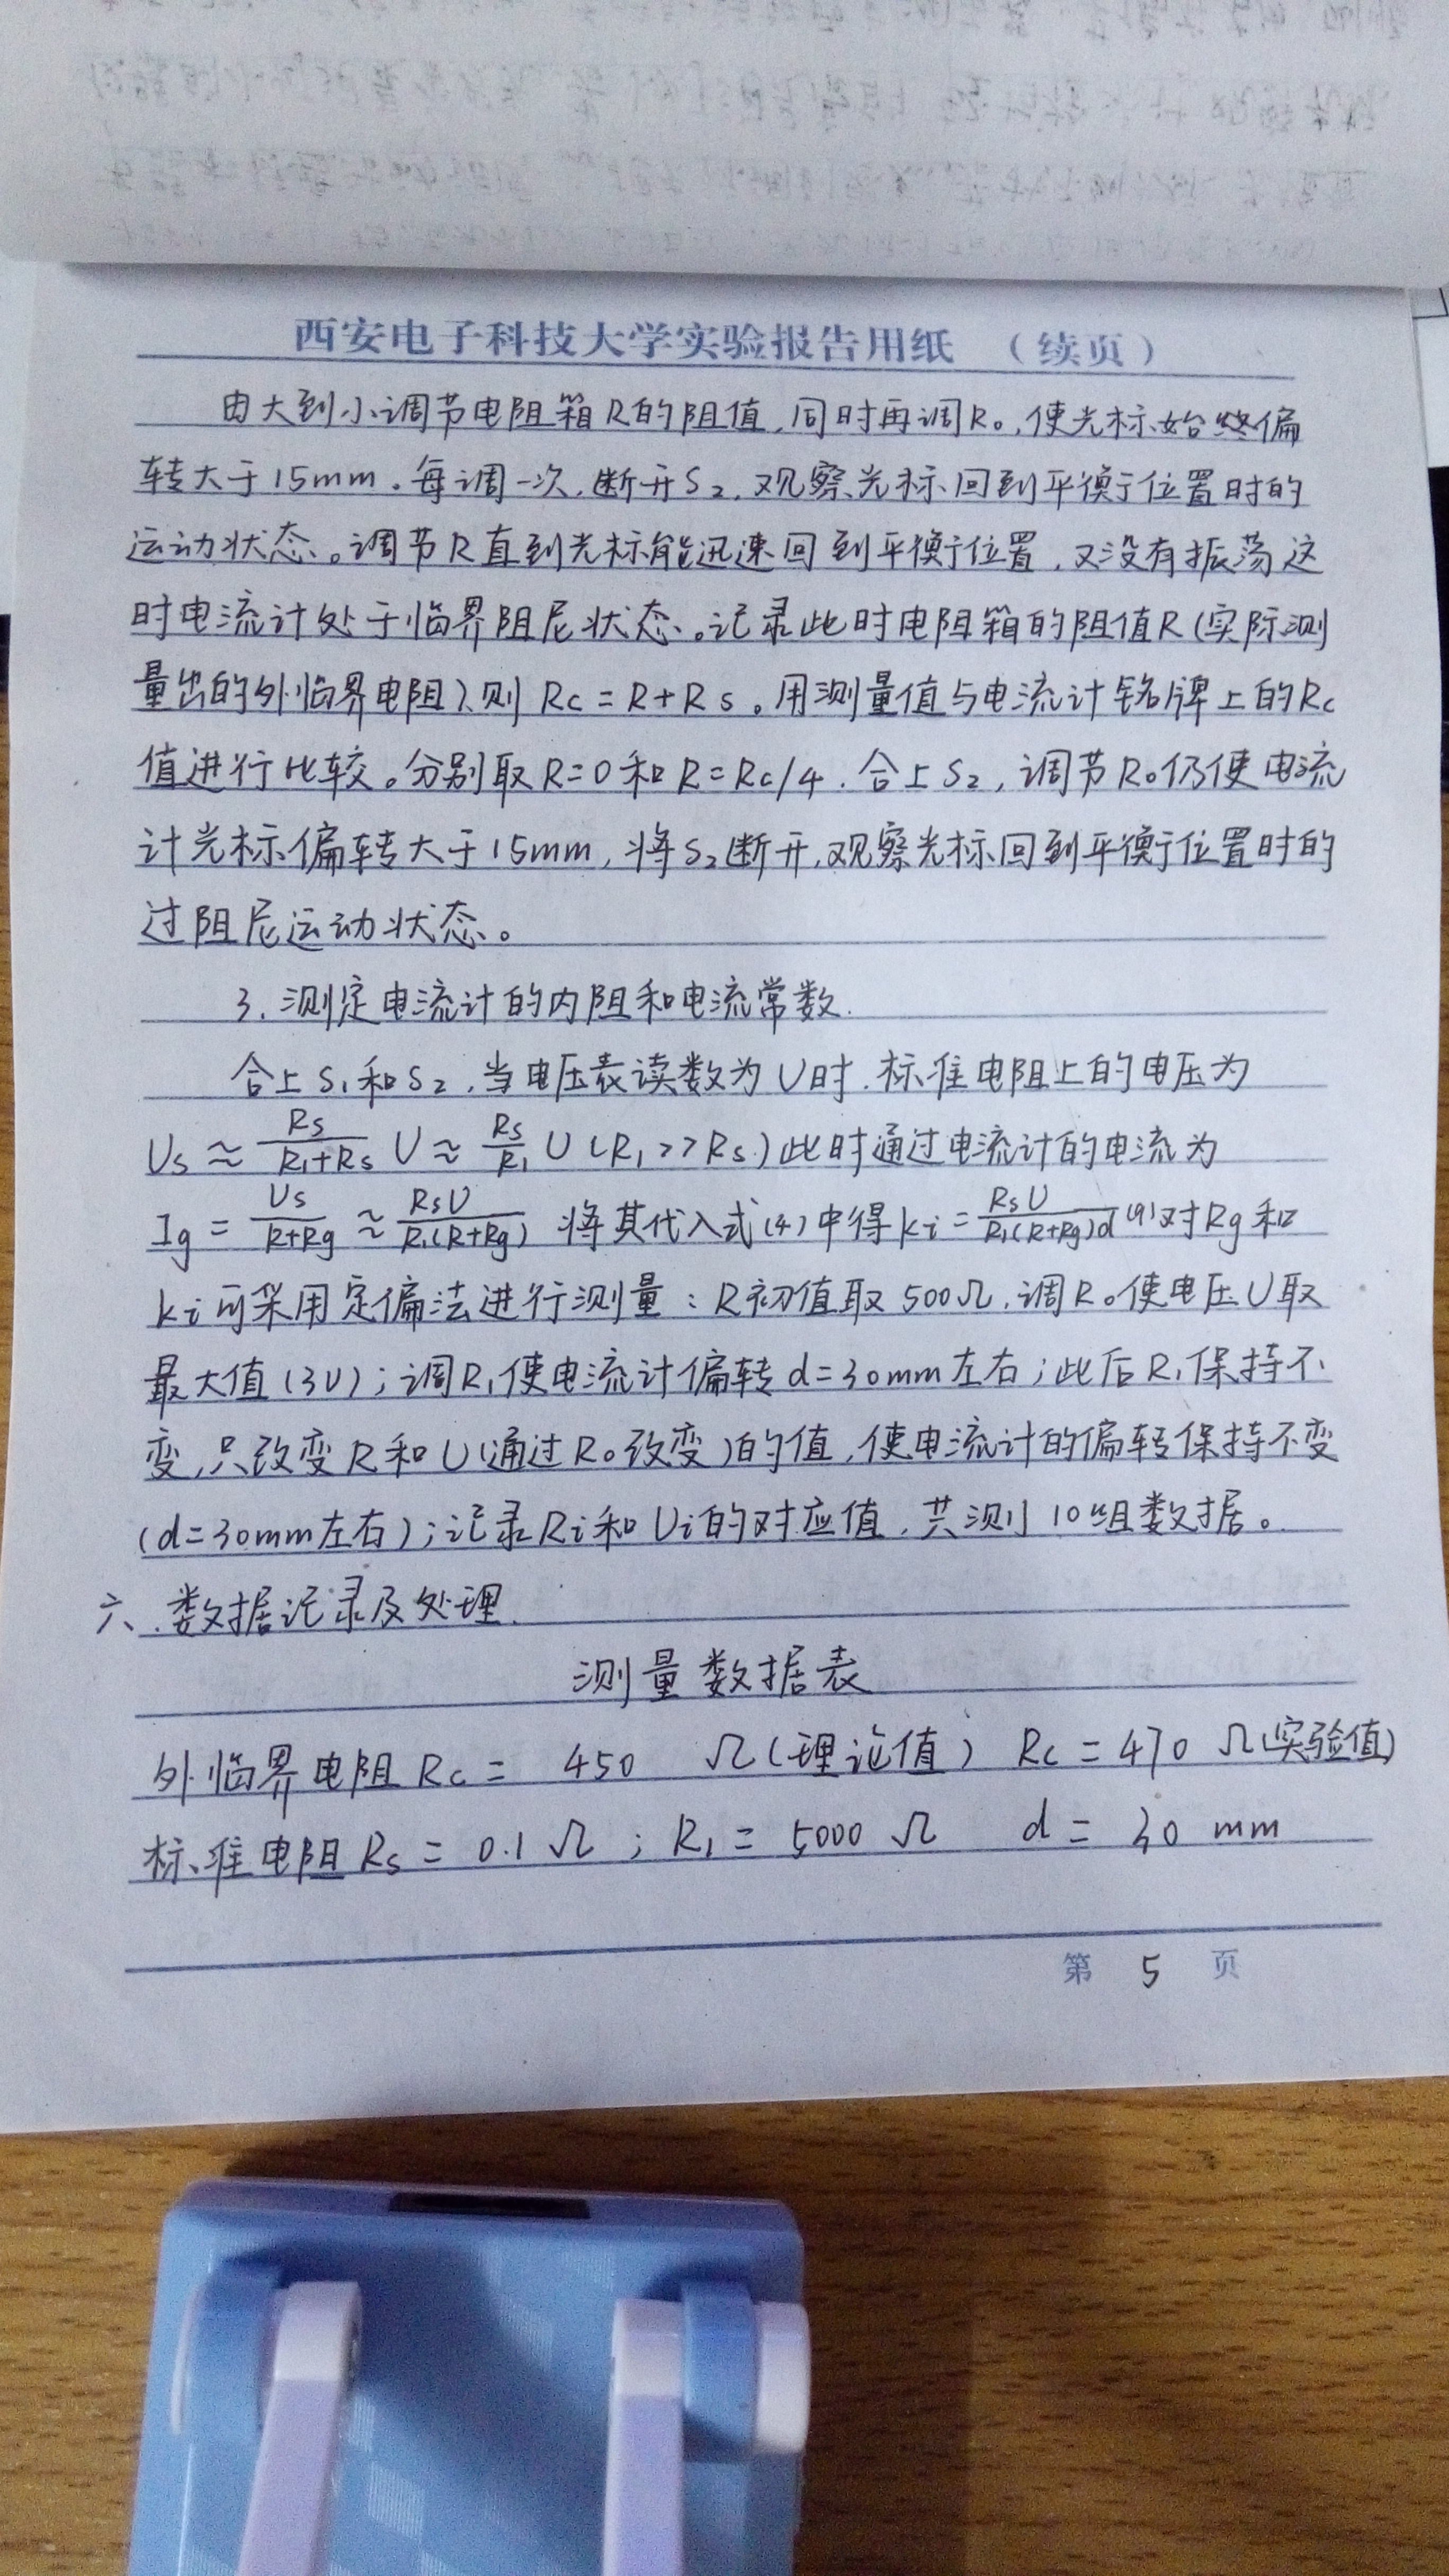 西安电子科技大学实验报告用纸 （续页）
由大到小调节电阻箱R的阻值，同时再调R₀，使光标始终偏
转大于15mm。每调一次，断开S₂，观察光标回到平衡位置时的
运动状态。调节R直到光标能迅速回到平衡位置，又没有振荡这
时电流计处于临界阻尼状态。记录此时电阻箱的阻值R（实际测
量出的外临界电阻），则 Rc=R+Rs。用测量值与电流计铭牌上的Rc
值进行比较。分别取R=0和R=Rc/4．合上S₂，调节R₀仍使电流
计光标偏转大于15mm，将S₂断开，观察光标回到平衡位置时的
过阻尼运动状态。
3．测定电流计的内阻和电流常数．
合上S₁和S₂，当电压表读数为U时．标准电阻上的电压为
Us≈Rs/(R₁+Rs) U≈Rs/R₁ U（R₁>>Rs）此时通过电流计的电流为
Ig=Us/(R+Rg)≈RsU/(R₁(R+Rg)) 将其代入式(4)中得ki=RsU/(R₁(R+Rg)d) (9)对Rg和
ki可采用定偏法进行测量：R初值取500Ω，调R₀使电压U取
最大值(3V)；调R₁使电流计偏转d=30mm左右；此后R₁保持不
变，只改变R和U（通过R₀改变）的值，使电流计的偏转保持不变
（d=30mm左右）；记录Ri和Ui的对应值，共测10组数据。
六．数据记录及处理．
测量数据表
外临界电阻Rc= 450 Ω（理论值） Rc=470 Ω（实验值）
标准电阻Rs=0.1Ω；R₁=5000Ω d=30 mm
第 5 页